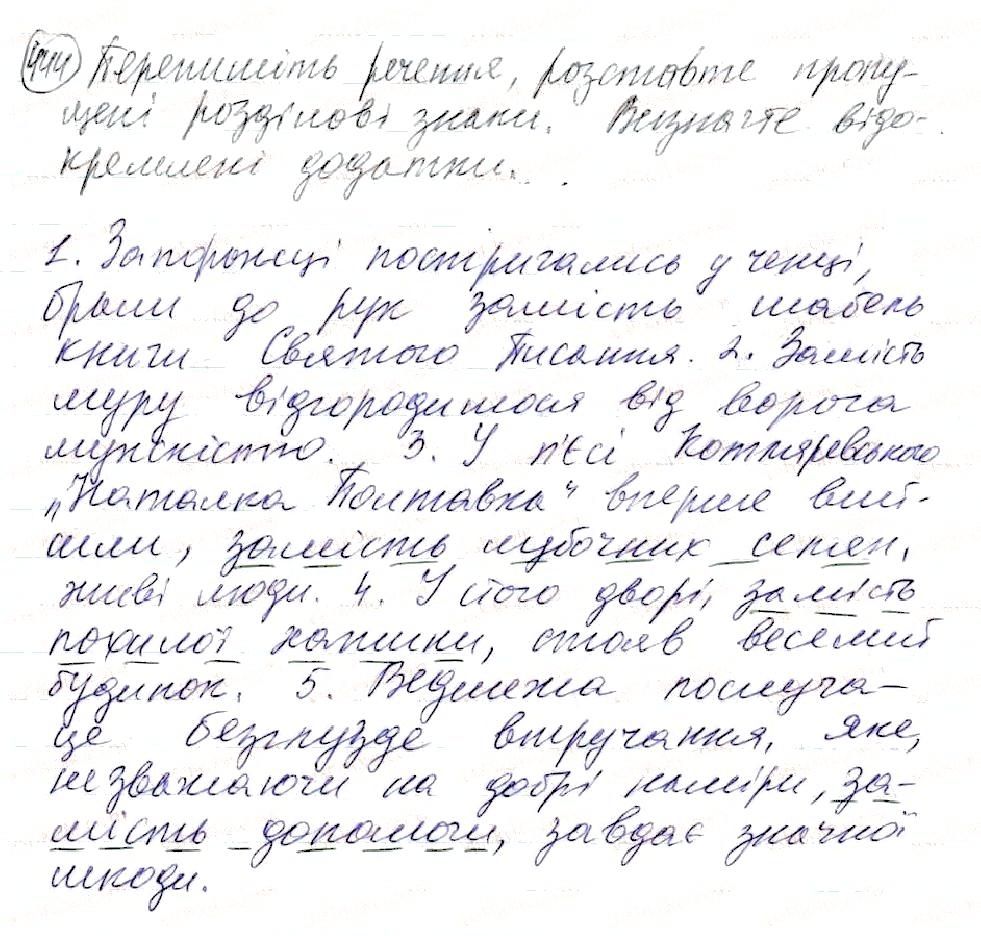 444 Перепишіть речення, розставте пропу-
щені розділові знаки. Визначте відо-
кремлені додатки.
1. Запорожці постригались у ченці,
брали до рук замість шабель
книги Святого Писання. 2. Замість
муру відгородимося від ворога
мужністю. 3. У п'єсі Котляревського
„Наталка Полтавка" вперше вий-
шли, замість лубочних селян,
живі люди. 4. У його дворі, замість
похилої хатини, стояв веселий
будинок. 5. Ведмежа послуга –
це безглузде втручання, яке,
незважаючи на добрі наміри, за-
мість допомоги, завдає значної
шкоди.